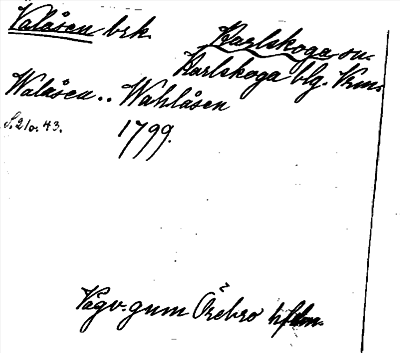 Valåsen brk. Karlskoga sn.
Karlskoga blg. Krm.
Walåsen.. Wahlåsen
S. 210. 43. 1799.
Vägv. gnm Örebro hfdm.